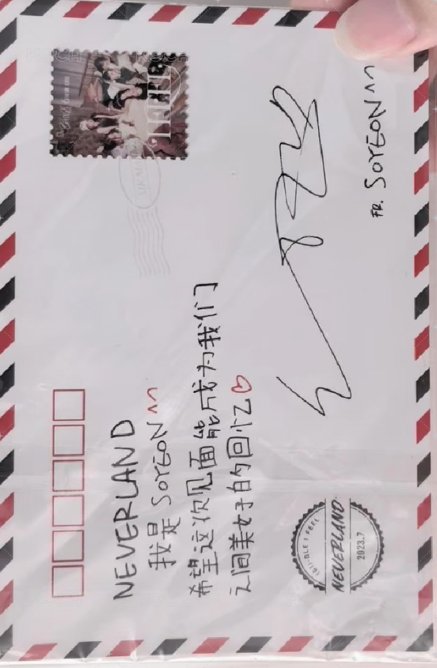 NEVERLAND
我是 SOYEON ^^
希望这次见面能成为我们
之间美好的回忆♡
FR. SOYEON ^^
(G)I-DLE I FEEL
NEVERLAND
2023.7